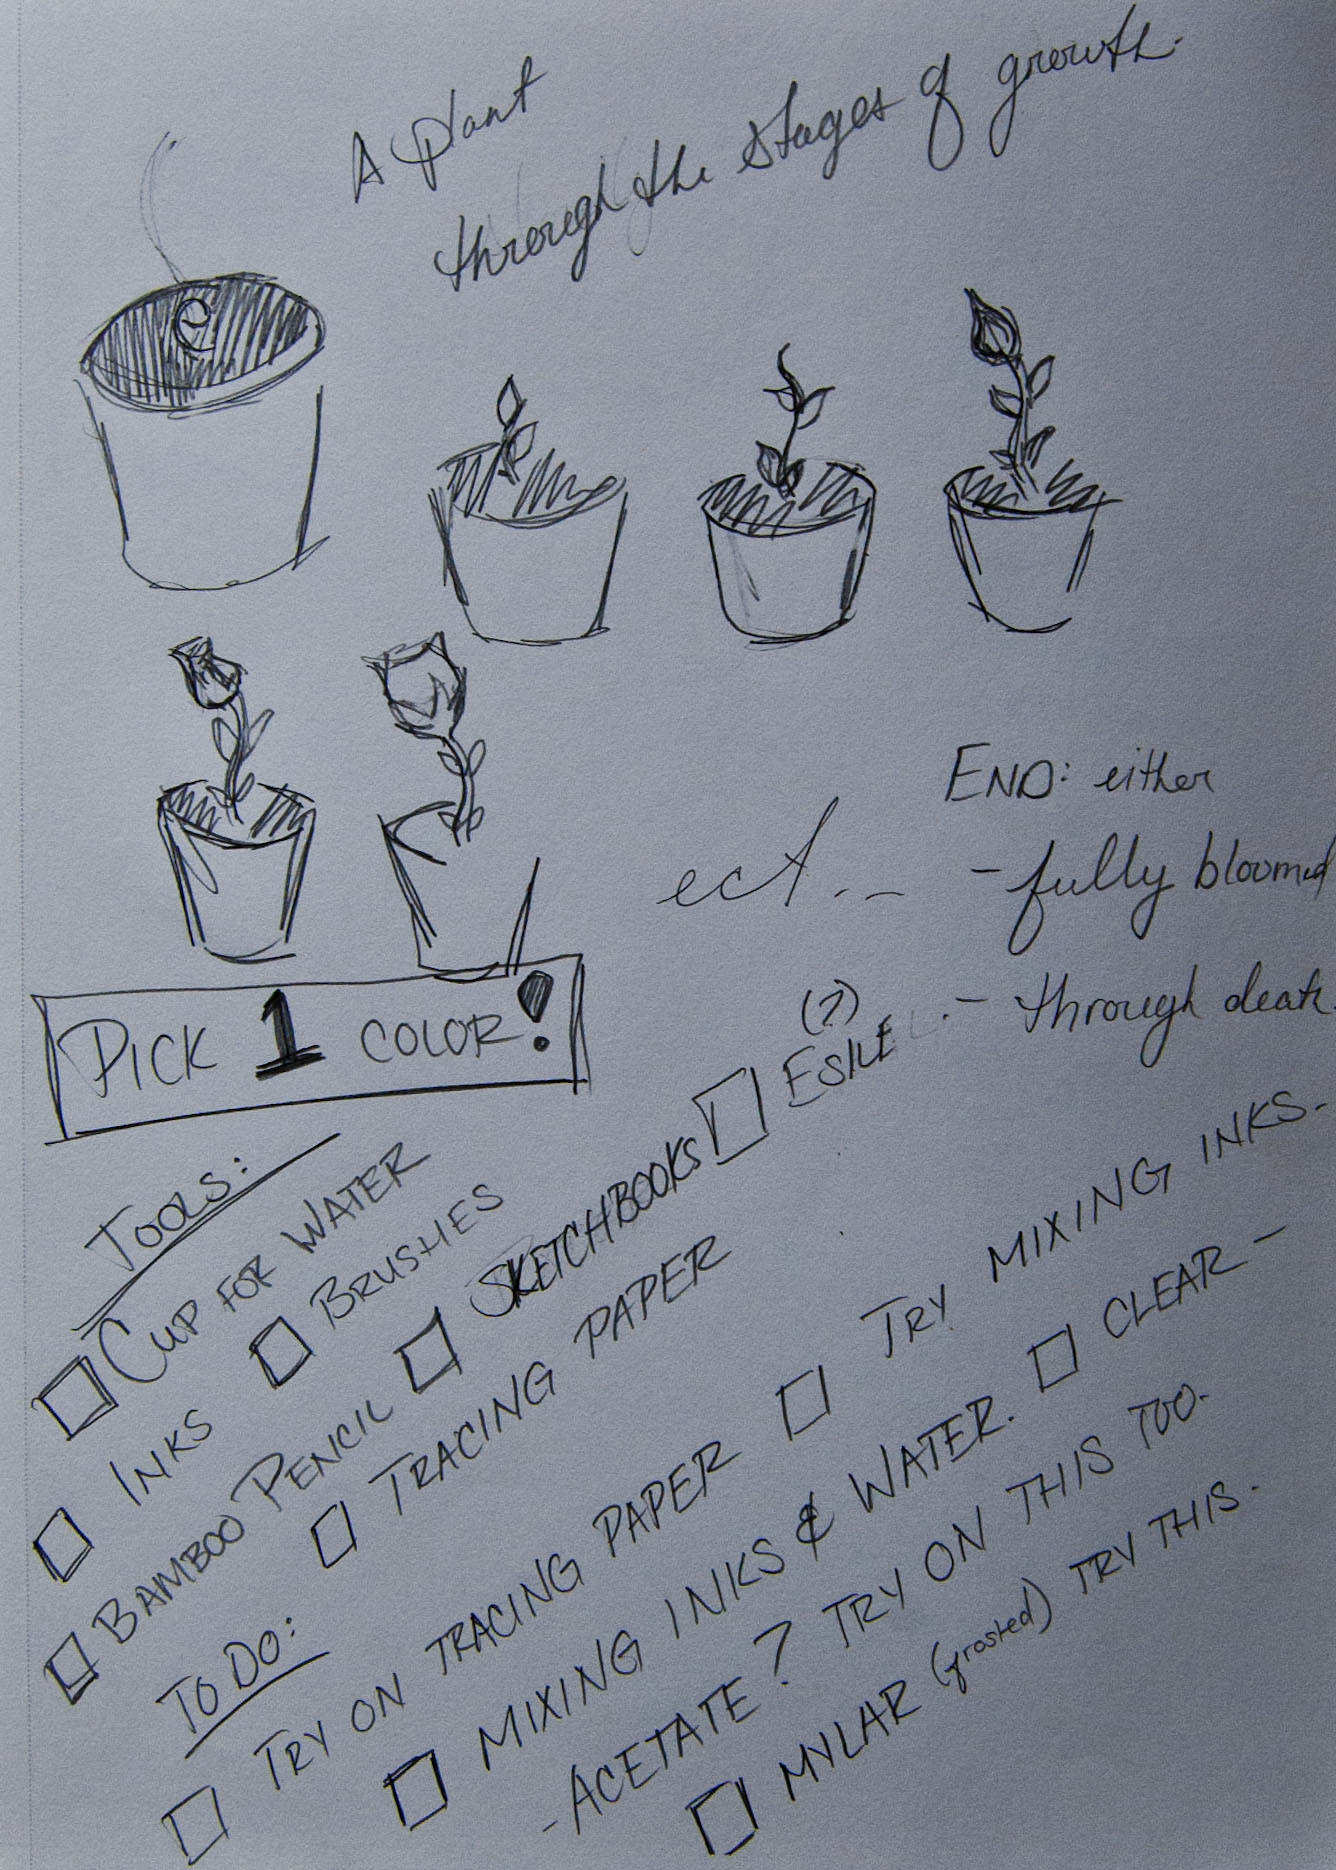 A plant
through the stages of growth.
END: either
ect...
- fully bloomed
- through death.
PICK 1 COLOR!
(?)
ESILE
TOOLS:
CUP FOR WATER
BRUSHES
SKETCHBOOKS
INKS
BAMBOO PENCIL
TRACING PAPER
TO DO:
TRY ON TRACING PAPER
TRY MIXING INKS.
MIXING INKS & WATER.
CLEAR -
- ACETATE? TRY ON THIS TOO.
MYLAR (frosted) TRY THIS.